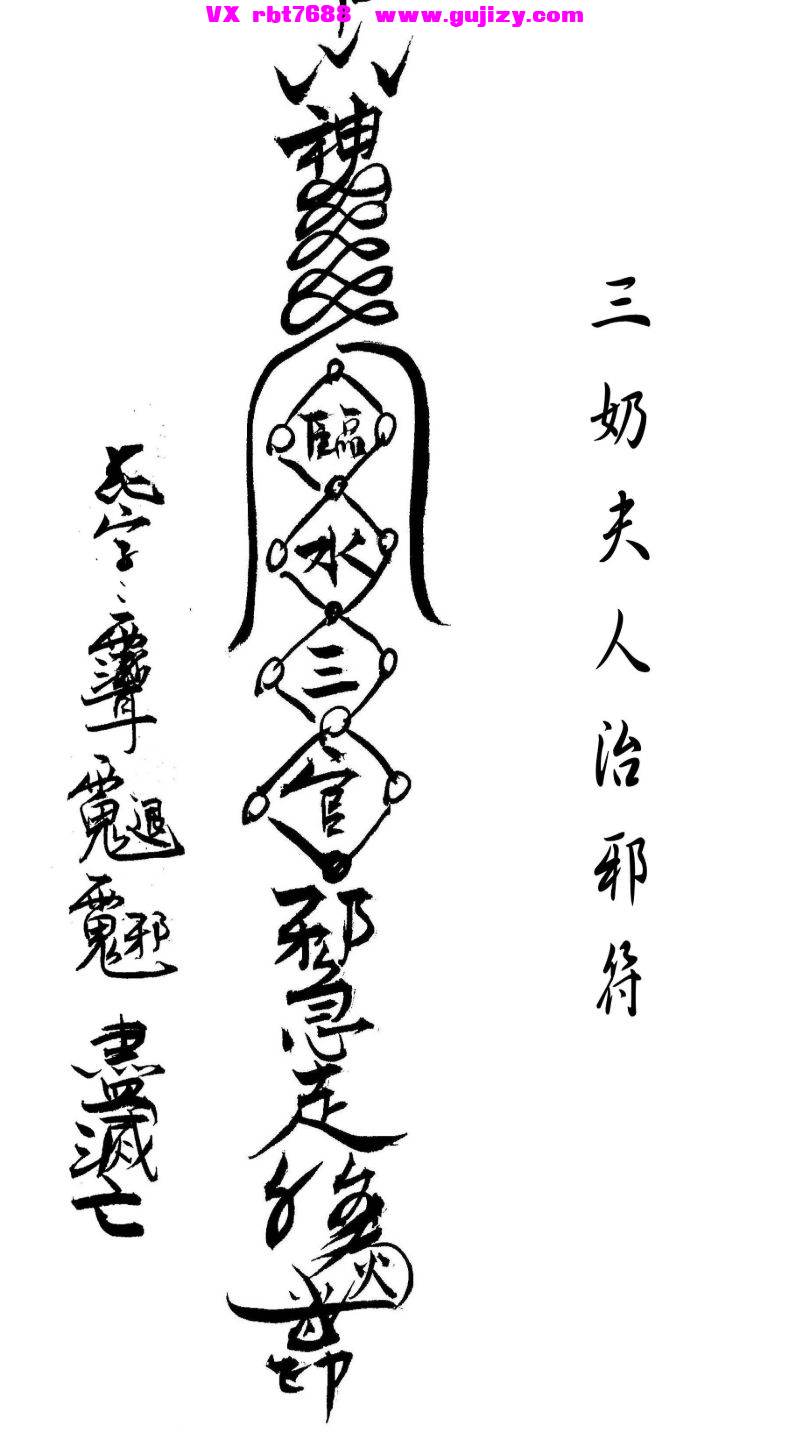 VX rbt7688 www.gujizy.com
三奶夫人治邪符
神
臨
水
三
官
邪急走
印
花字
退
邪
盡滅亡